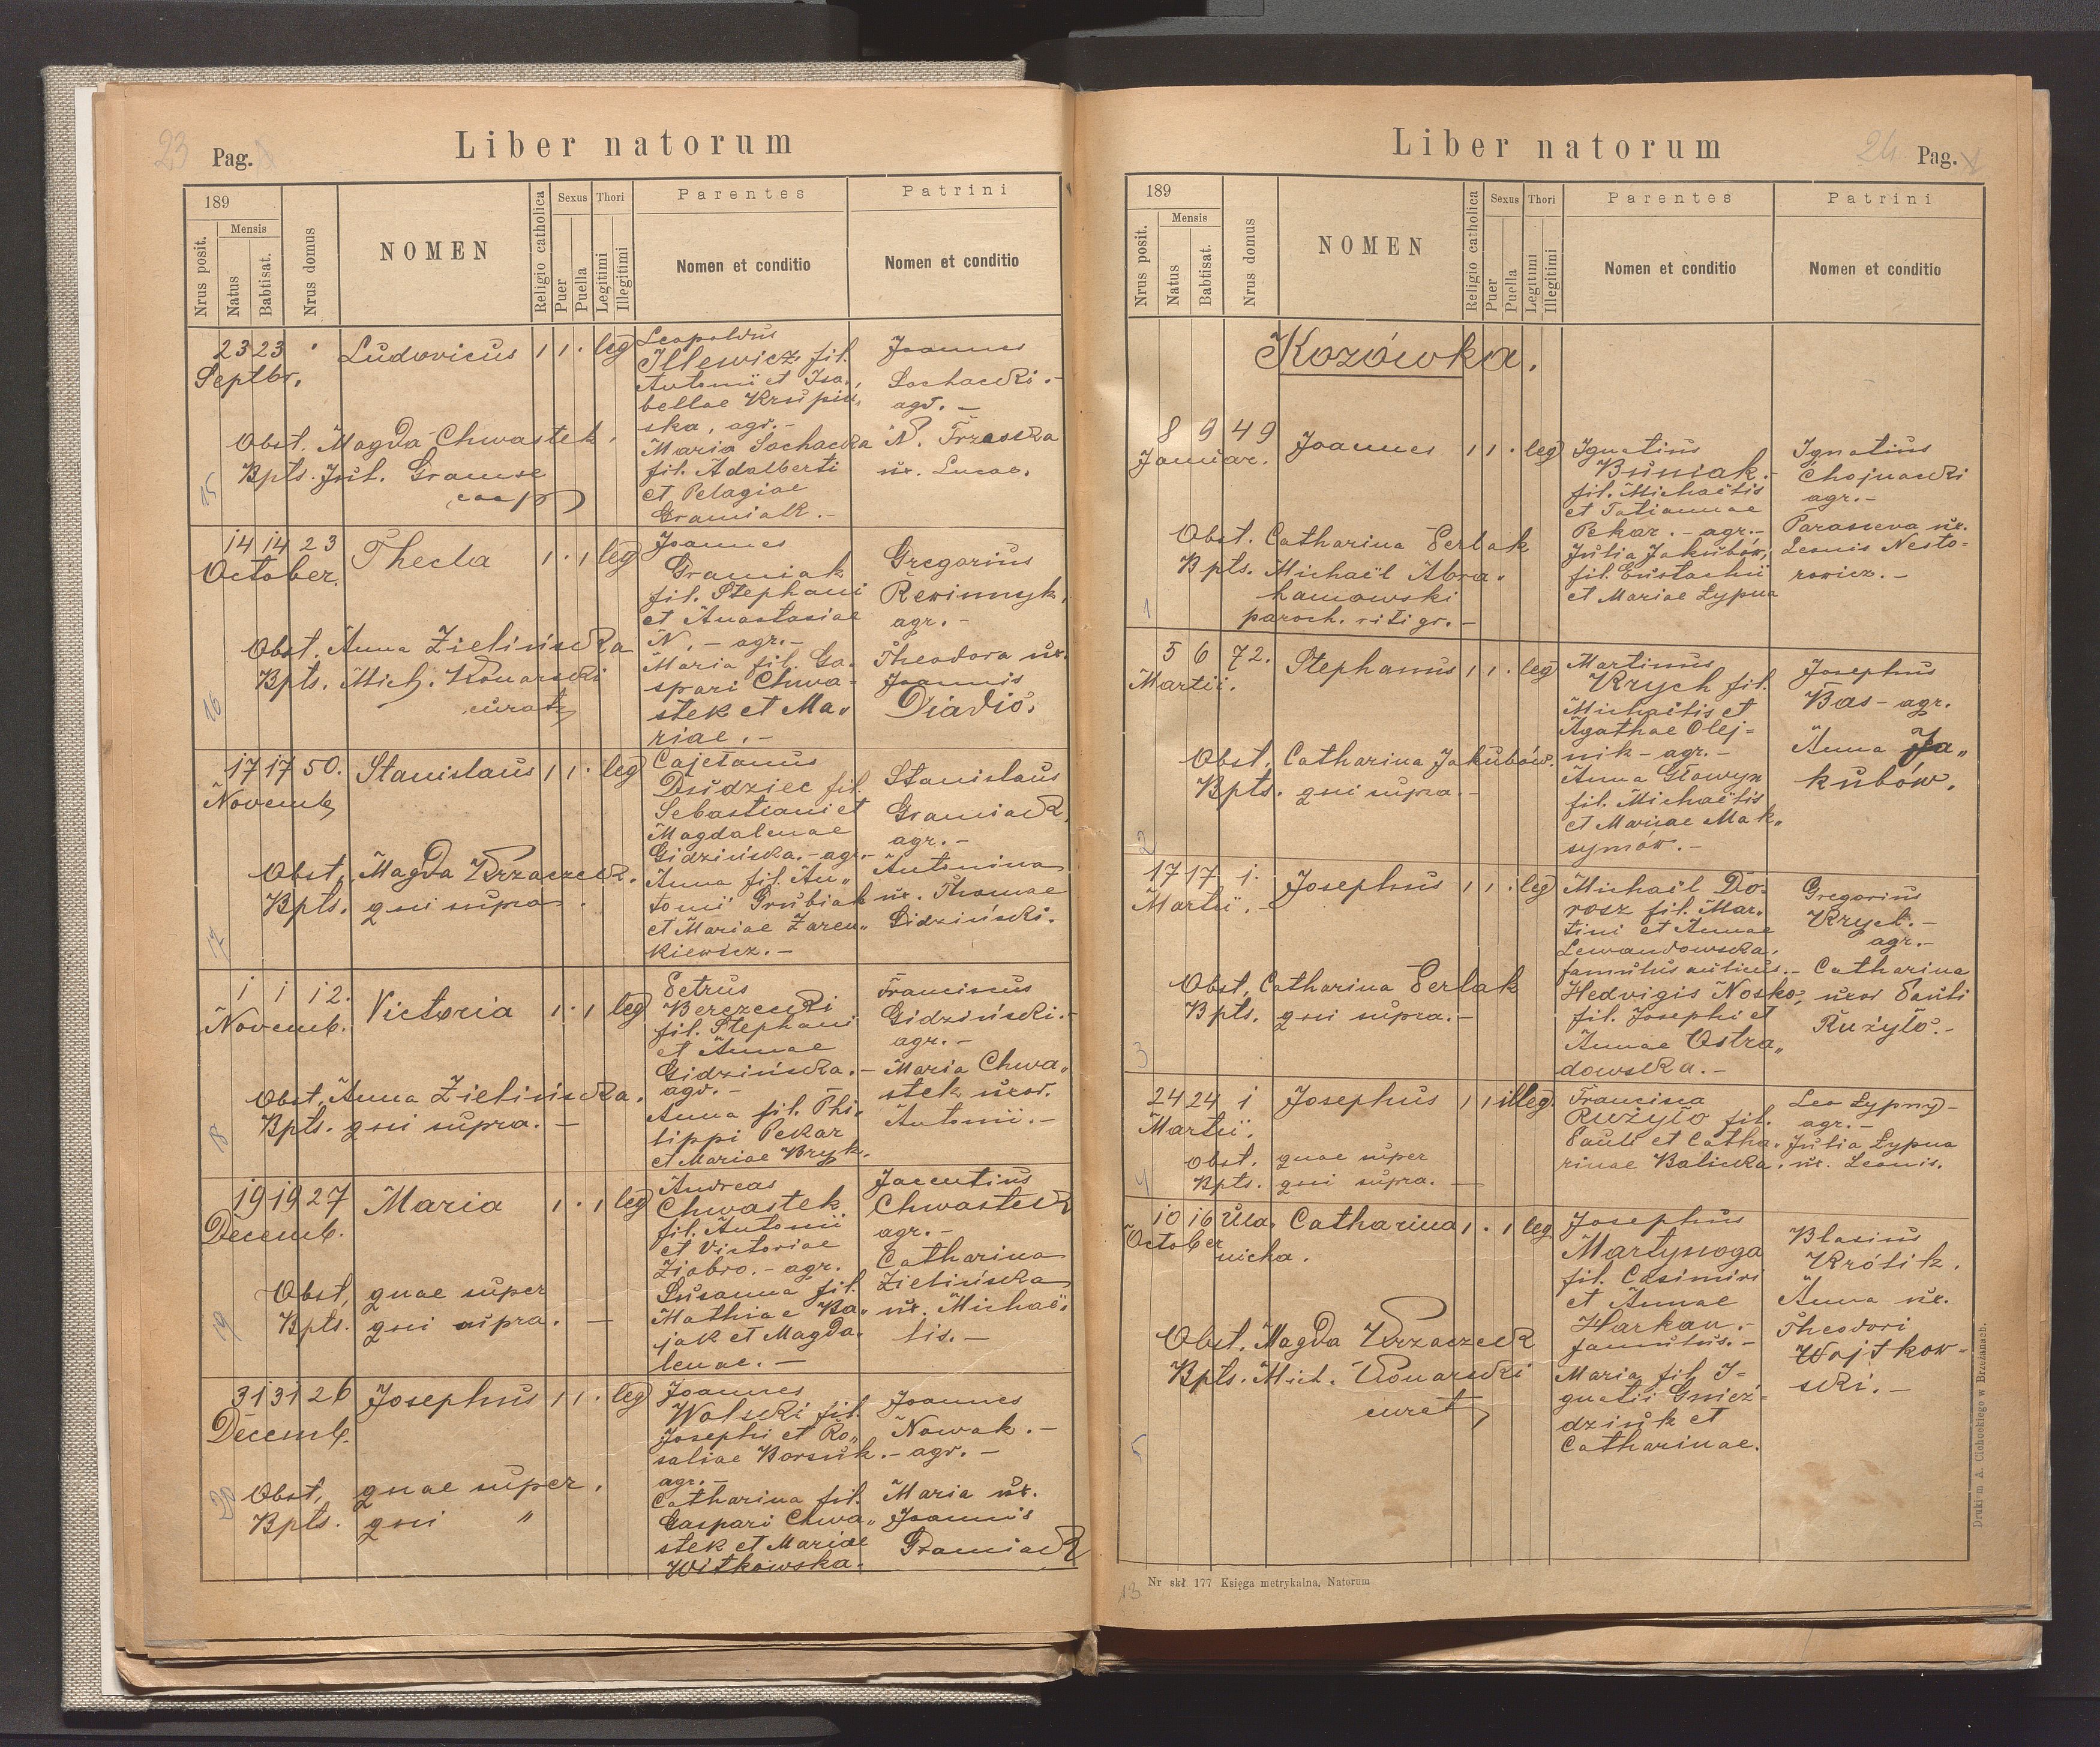 23 Pag.
Liber natorum
189
Nrus posit.
Mensis
Natus
Babtisat.
Nrus domus
NOMEN
Religio catholica
Sexus
Puer
Puella
Thori
Legitimi
Illegitimi
Parentes
Nomen et conditio
Patrini
Nomen et conditio
15
23 23
Septbr.
Ludovicus 1 1 . leg
Obst. Magda Chwastek.
Bpts. Jul. Gramse
coop
Leopoldus
Illewicz fil.
Antonii et Isa„
bellae Krupiń„
ska, agr. -
Maria Sochacka
fil. Adalberti
et Pelagiae
Gramiak. -
Joannes
Sochacki. -
agr. -
N. Trzaska
ux. Lucae.
16
14 14 23
October.
Thecla 1 . 1 leg
Obst. Anna Zielińska
Bpts. Mich. Konarski
curat
Joannes
Gramiak
fil. Stephani
et Anastasiae
N. - agr. -
Maria fil. Ga„
spari Chwa„
stek et Ma„
riae. -
Gregorius
Rewinnyk,
agr. -
Theodora ux.
Joannis
Diadio.
17
17 17 50.
Novemb.
Stanislaus 1 1 . leg
Obst. Magda Krzaczek.
Bpts. qui supra.
Cajetanus
Dudziec fil.
Sebastiani et
Magdalenae
Gidzińska. - agr. -
Anna fil. An„
tonii Grubiak
et Mariae Zaren„
kiewicz. -
Stanislaus
Gramiak,
agr. -
Antonina
ux. Thomae
Gidziński.
18
1 1 12.
Novemb.
Victoria 1 . 1 leg
Obst. Anna Zielińska.
Bpts. qui supra. -
Petrus
Berezecki
fil. Stephani
et Annae
Gidzińska. -
agr. -
Anna fil. Phi„
lippi Pekar
et Mariae Bryk.
Franciscus
Gidziński. -
agr. -
Maria Chwa„
stek uxor.
Antonii. -
19
19 19 27
Decemb.
Maria 1 . 1 leg
Obst. quae super
Bpts. qui supra. -
Andreas
Chwastek
fil. Antonii
et Victoriae
Ziobro. - agr.
Susanna fil.
Mathiae Ba„
jak et Magda„
lenae. -
Jacentius
Chwastek
agr. -
Catharina
Zielińska
ux. Michaë„
lis. -
20
31 31 26
Decemb.
Josephus 1 1 . leg
Obst. quae super.
Bpts. qui "
Joannes
Wolski fil.
Josephi et Ro„
saliae Borsuk. -
agr. -
Catharina fil.
Gaspari Chwa„
stek et Mariae
Witkowska.
Joannes
Nowak. -
agr. -
Maria ux.
Joannis
Gramiak
Liber natorum
24 Pag.
189
Nrus posit.
Mensis
Natus
Babtisat.
Nrus domus
NOMEN
Religio catholica
Sexus
Puer
Puella
Thori
Legitimi
Illegitimi
Parentes
Nomen et conditio
Patrini
Nomen et conditio
Kozówka.
1
8 9 49
Januar.
Joannes 1 1 . leg
Obst. Catharina Perlak
Bpts. Michaël Abra„
hamowski
paroch. riti gr. -
Ignatius
Busniak. -
fil. Michaëlis
et Tatiannae
Pekar. - agr. -
Julia Jakubów,
fil. Eustachii
et Mariae Łypna
Ignatius
Chojnacki
agr. -
Parasceva ux.
Leonis Nesto=
rowicz. -
2
5 6 72.
Martii.
Stephanus 1 1 . leg
Obst. Catharina Jakubów.
Bpts. qui supra. -
Martinus
Krych fil.
Michaëlis et
Agathae Olej=
nik - agr. -
Anna Głowyn
fil. Michaëlis
et Mariae Mak„
symów. -
Josephus
Bas - agr.
Anna Ja„
kubów.
3
17 17 1.
Martii. -
Josephus 1 1 . leg
Obst. Catharina Perlak
Bpts. qui supra. -
Michaël Do„
rosz fil. Mar„
tini et Annae
Lewandowska,
famulus aulicus. -
Hedvigis Nosko„
fil. Josephi et
Annae Ostra„
dowska. -
Gregorius
Krych. -
agr. -
Catharina
uxor Pauli
Rużyło. -
4
24 24 1
Martii.
Josephus 1 1 illeg.
Obst. quae super
Bpts. qui supra. -
Francisca
Rużyło fil.
Pauli et Catha„
rinae Balicka.
Leo Łypny -
agr. -
Julia Łypna
ux. Leonis.
5
10 16 Ula„
October nicka.
Catharina 1 . 1 leg
Obst. Magda Krzaczek
Bpts. Mich. Konarski
curat
Josephus
Martynoga
fil. Casimiri
et Annae
Harkau. -
famulus. -
Maria fil. I=
gnatii Gniez=
dziuk et
Catharinae.
Blasius
Królik.
Anna ux.
Theodori
Wojtkow=
ski. -
Nr skł 177 Księga metrykalna, Natorum
13
Drukiem A. Cichockiego w Brzeżanach.